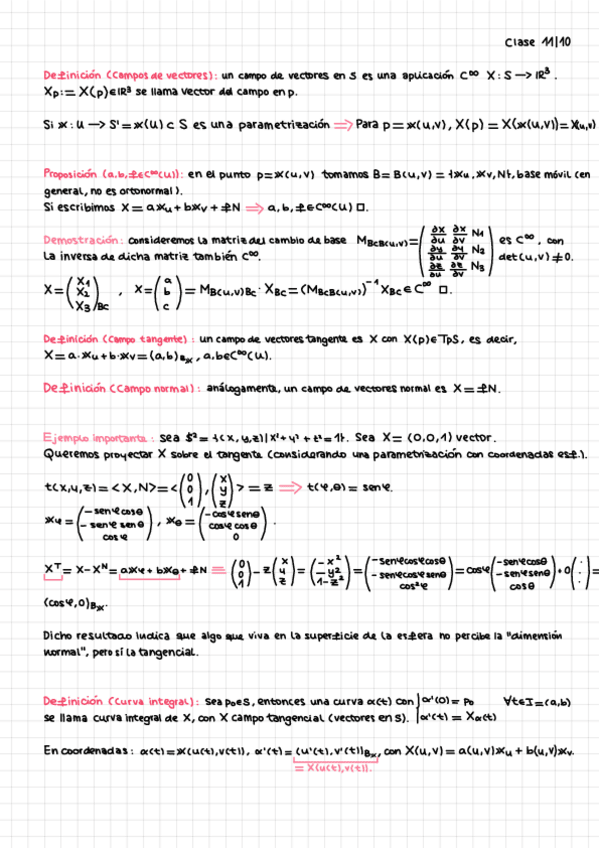 Clase 11/10
Definición (Campos de vectores): un campo de vectores en S es una aplicación C^∞ X: S → ℝ³.
Xp := X(p) ∈ ℝ³ se llama vector del campo en p.
Si 𝕩: U → S' = 𝕩(U) ⊂ S es una parametrización ⇒ Para p = 𝕩(u,v), X(p) = X(𝕩(u,v)) = X(u,v)
Proposición (a, b, f ∈ C^∞(U)): en el punto p = 𝕩(u,v) tomamos B = B(u,v) = {𝕩u, 𝕩v, N}, base móvil (en
general, no es ortonormal).
Si escribimos X = a𝕩u + b𝕩v + fN ⇒ a, b, f ∈ C^∞(U) □.
Demostración: consideremos la matriz del cambio de base M_BcB(u,v) = (∂x/∂u ∂x/∂v N1; ∂y/∂u ∂y/∂v N2; ∂z/∂u ∂z/∂v N3) es C^∞, con
La inversa de dicha matriz también C^∞. det(u,v) ≠ 0.
X = (X1; X2; X3)_Bc, X = (a; b; c) = M_B(u,v)Bc · X_Bc = (M_BcB(u,v))^-1 X_Bc ∈ C^∞ □.
Definición (Campo tangente): un campo de vectores tangente es X con X(p) ∈ TpS, es decir,
X = a·𝕩u + b·𝕩v = (a,b)_B𝕩, a, b ∈ C^∞(U).
Definición (Campo normal): análogamente, un campo de vectores normal es X = fN.
Ejemplo importante: sea 𝕊² = {(x, y, z) | x² + y² + z² = 1}. Sea X = (0,0,1) vector.
Queremos proyectar X sobre el tangente (considerando una parametrización con coordenadas esf.).
t(x,y,z) = <X,N> = <(0; 0; 1), (x; y; z)> = z ⇒ t(φ,θ) = senφ.
𝕩φ = (-senφcosθ; -senφsenθ; cosφ), 𝕩θ = (-cosφsenθ; cosφcosθ; 0).
X^T = X - X^N = a𝕩φ + b𝕩θ + fN = (0; 0; 1) - z(x; y; z) = (-x²; -y²; 1-z²) = (-senφcosφcosθ; -senφcosφsenθ; cos²φ) = cosφ(-senφcosθ; -senφsenθ; cosθ) + 0(·; ·; ·) =
(cosφ, 0)_B𝕩.
Dicho resultado indica que algo que viva en la superficie de la esfera no percibe la "dimensión
normal", pero sí la tangencial.
Definición (Curva integral): sea p0 ∈ S, entonces una curva α(t) con { α'(0) = P0 ∀t ∈ I = (a,b)
se llama curva integral de X, con X campo tangencial (vectores en S). { α'(t) = X_α(t)
En coordenadas: α(t) = 𝕩(u(t), v(t)), α'(t) = (u'(t), v'(t))_B𝕩, con X(u,v) = a(u,v)𝕩u + b(u,v)𝕩v.
= X(u(t), v(t)).